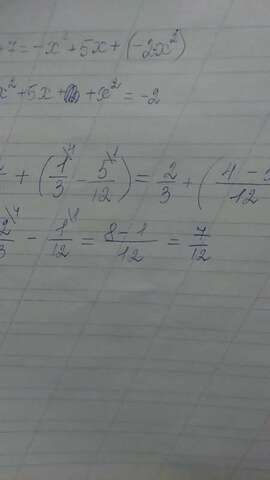 +7 = -x² + 5x + (-2x²)
x² + 5x + + x² = -2
+ (1/3 - 5/12) = 2/3 + (4 - 5/12
2/3 - 1/12 = 8-1/12 = 7/12